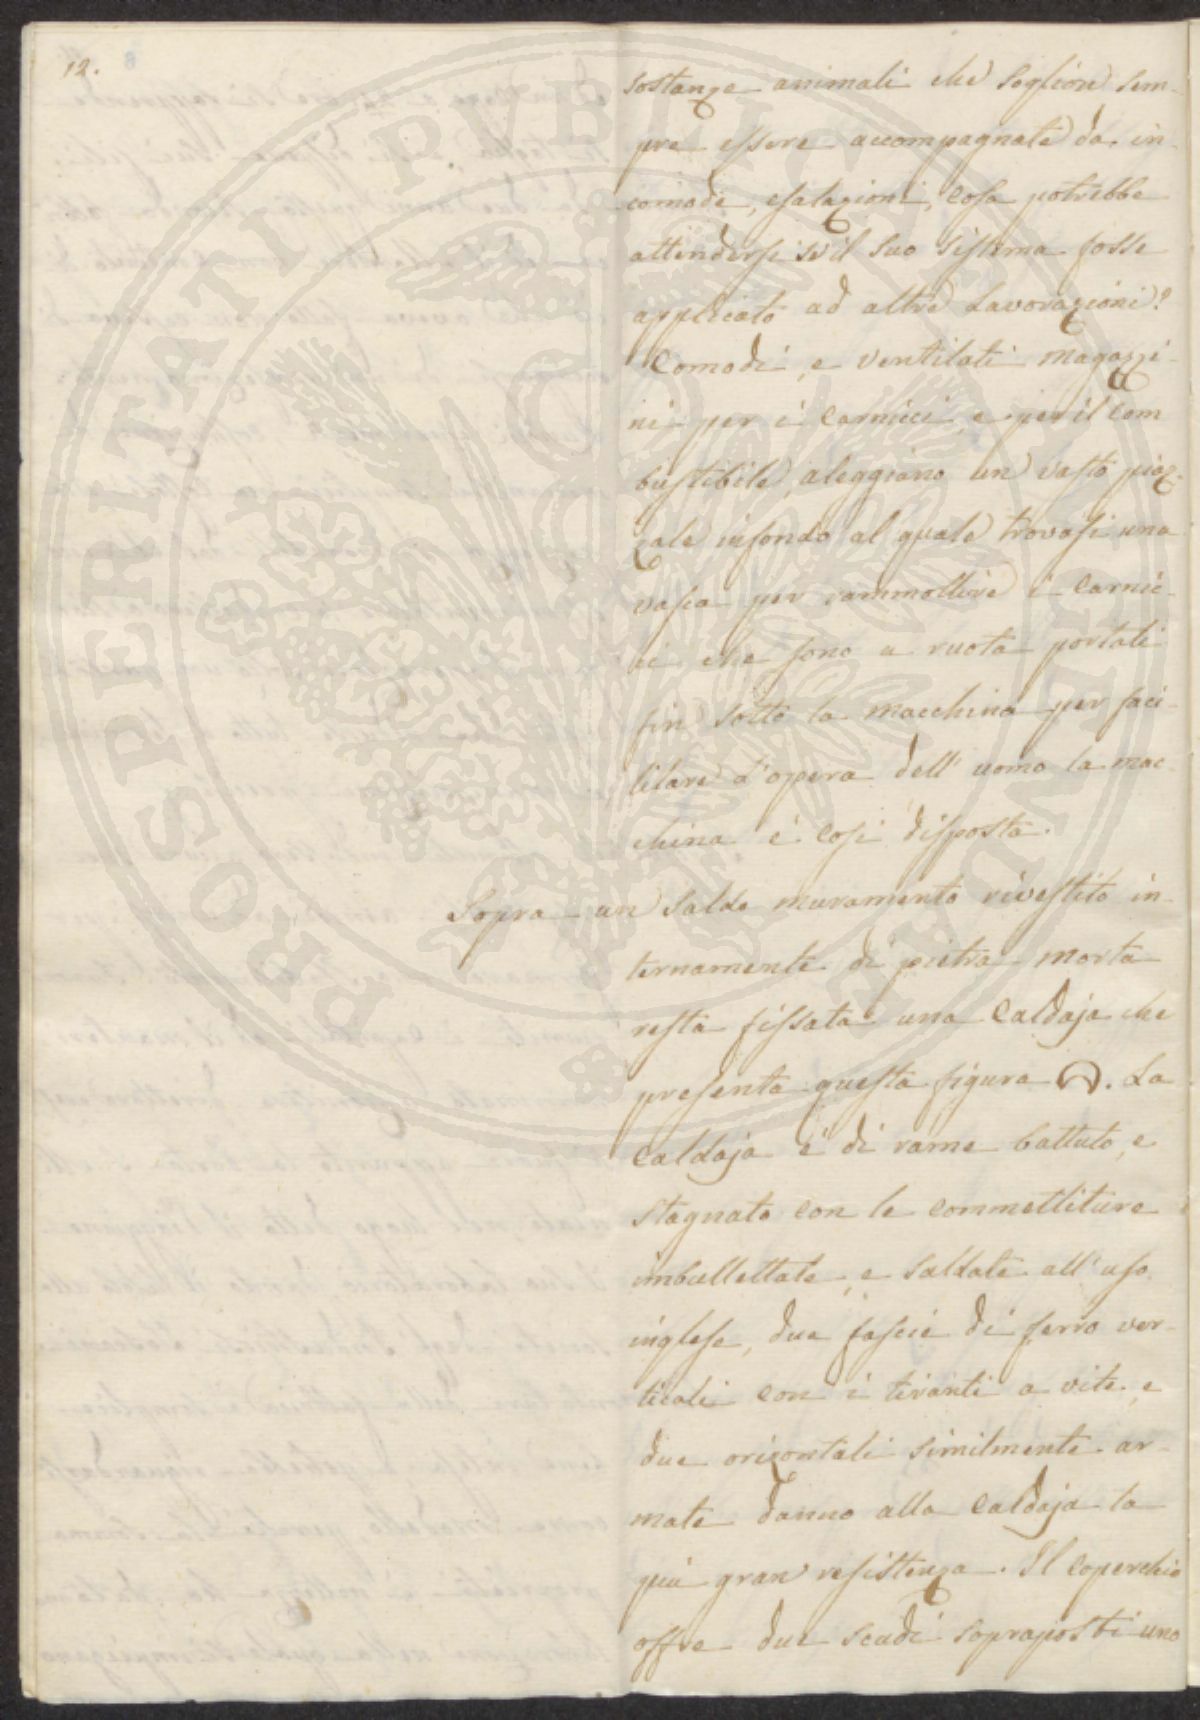 12.
sostanze animali che soglion sem-
pre essere accompagnate da in-
comode, esalazioni, cosa potrebbe
attendersi se il suo sistema fosse
applicato ad altre Lavorazioni?
Comodi, e ventilati magazzi-
ni per i Carnicci, e per il com
bustibile, aleggiano un vasto piaz-
zale infondo al quale trovasi una
vasca per rammollire i Carnic-
ci che sono a ruota portati
fin sotto la macchina per faci-
litare l'opera dell' uomo la mac-
china è così disposta.
Sopra un saldo muramento rivestito in-
ternamente di pietra morta
resta fissata una Caldaja che
presenta questa figura. La
Caldaja è di rame battuto, e
stagnato con le commettiture
imbullettate, e saldate all' uso
inglese, due fascie di ferro ver-
ticali con i tiranti a vite, e
due orizontali similmente ar-
mate danno alla Caldaja la
più gran resistenza. Il coperchio
offre due scudi soprapposti uno
PROSPERITATI PVBLICAE AVGENDAE